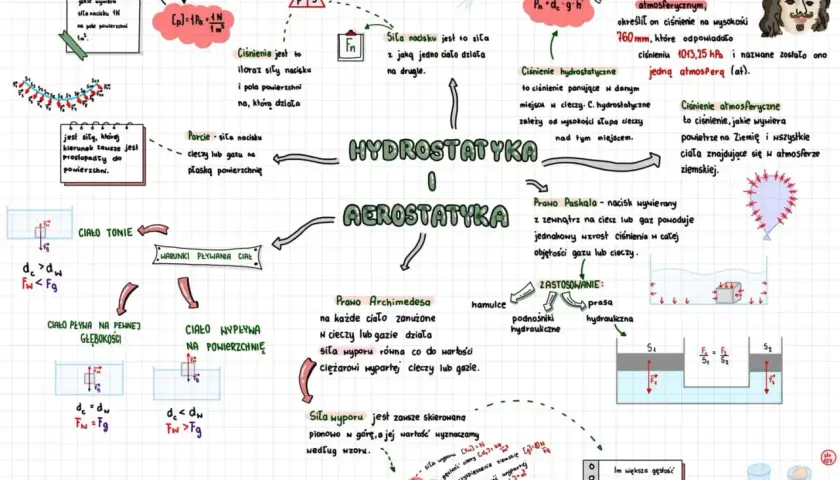 jakie wywiera
siła nacisku 1N
na pole powierzchni
1m².
[p] = 1Pa = 1N
1m²
p S
Fn
Ciśnienie jest to
iloraz siły nacisku
i pola powierzchni
na, którą działa
Siła nacisku jest to siła
z jaką jedno ciało działa
na drugie.
Pₕ = dc · g · h
Ciśnienie hydrostatyczne
to ciśnienie panujące w danym
miejscu w cieczy. C. hydrostatyczne
zależy od wysokości słupa cieczy
nad tym miejscem.
atmosferycznym,
określił on ciśnienie na wysokości
760 mm, które odpowiadało
ciśnieniu 1013,25 hPa i nazwane zostało ono
jedną atmosferą (at).
Ciśnienie atmosferyczne
to ciśnienie, jakie wywiera
powietrze na Ziemię i wszystkie
ciała znajdujące się w atmosferze
ziemskiej.
jest siłą, której
kierunek zawsze jest
prostopadły do
powierzchni.
Parcie - siła nacisku
cieczy lub gazu na
płaską powierzchnię
HYDROSTATYKA
I
AEROSTATYKA
Prawo Paskala - nacisk wywierany
z zewnątrz na ciecz lub gaz powoduje
jednakowy wzrost ciśnienia w całej
objętości gazu lub cieczy.
ZASTOSOWANIE:
hamulce
podnośniki
hydrauliczne
prasa
hydrauliczna
S₁
F₁ = F₂
S₁ S₂
S₂
F₁
F₂
WARUNKI PŁYWANIA CIAŁ
CIAŁO TONIE
Fw
Fg
dc > dw
Fw < Fg
CIAŁO PŁYWA NA PEWNEJ
GŁĘBOKOŚCI
Fw
Fg
dc = dw
Fw = Fg
CIAŁO WYPŁYWA
NA POWIERZCHNIĘ
Fw
Fg
dc < dw
Fw > Fg
Prawo Archimedesa
na każde ciało zanurzone
w cieczy lub gazie działa
siła wyporu równa co do wartości
ciężarowi wypartej cieczy lub gazie.
Siła wyporu jest zawsze skierowana
pionowo w górę, a jej wartość wyznaczamy
według wzoru.
siła wyporu [Fw] = N
Im większa gęstość